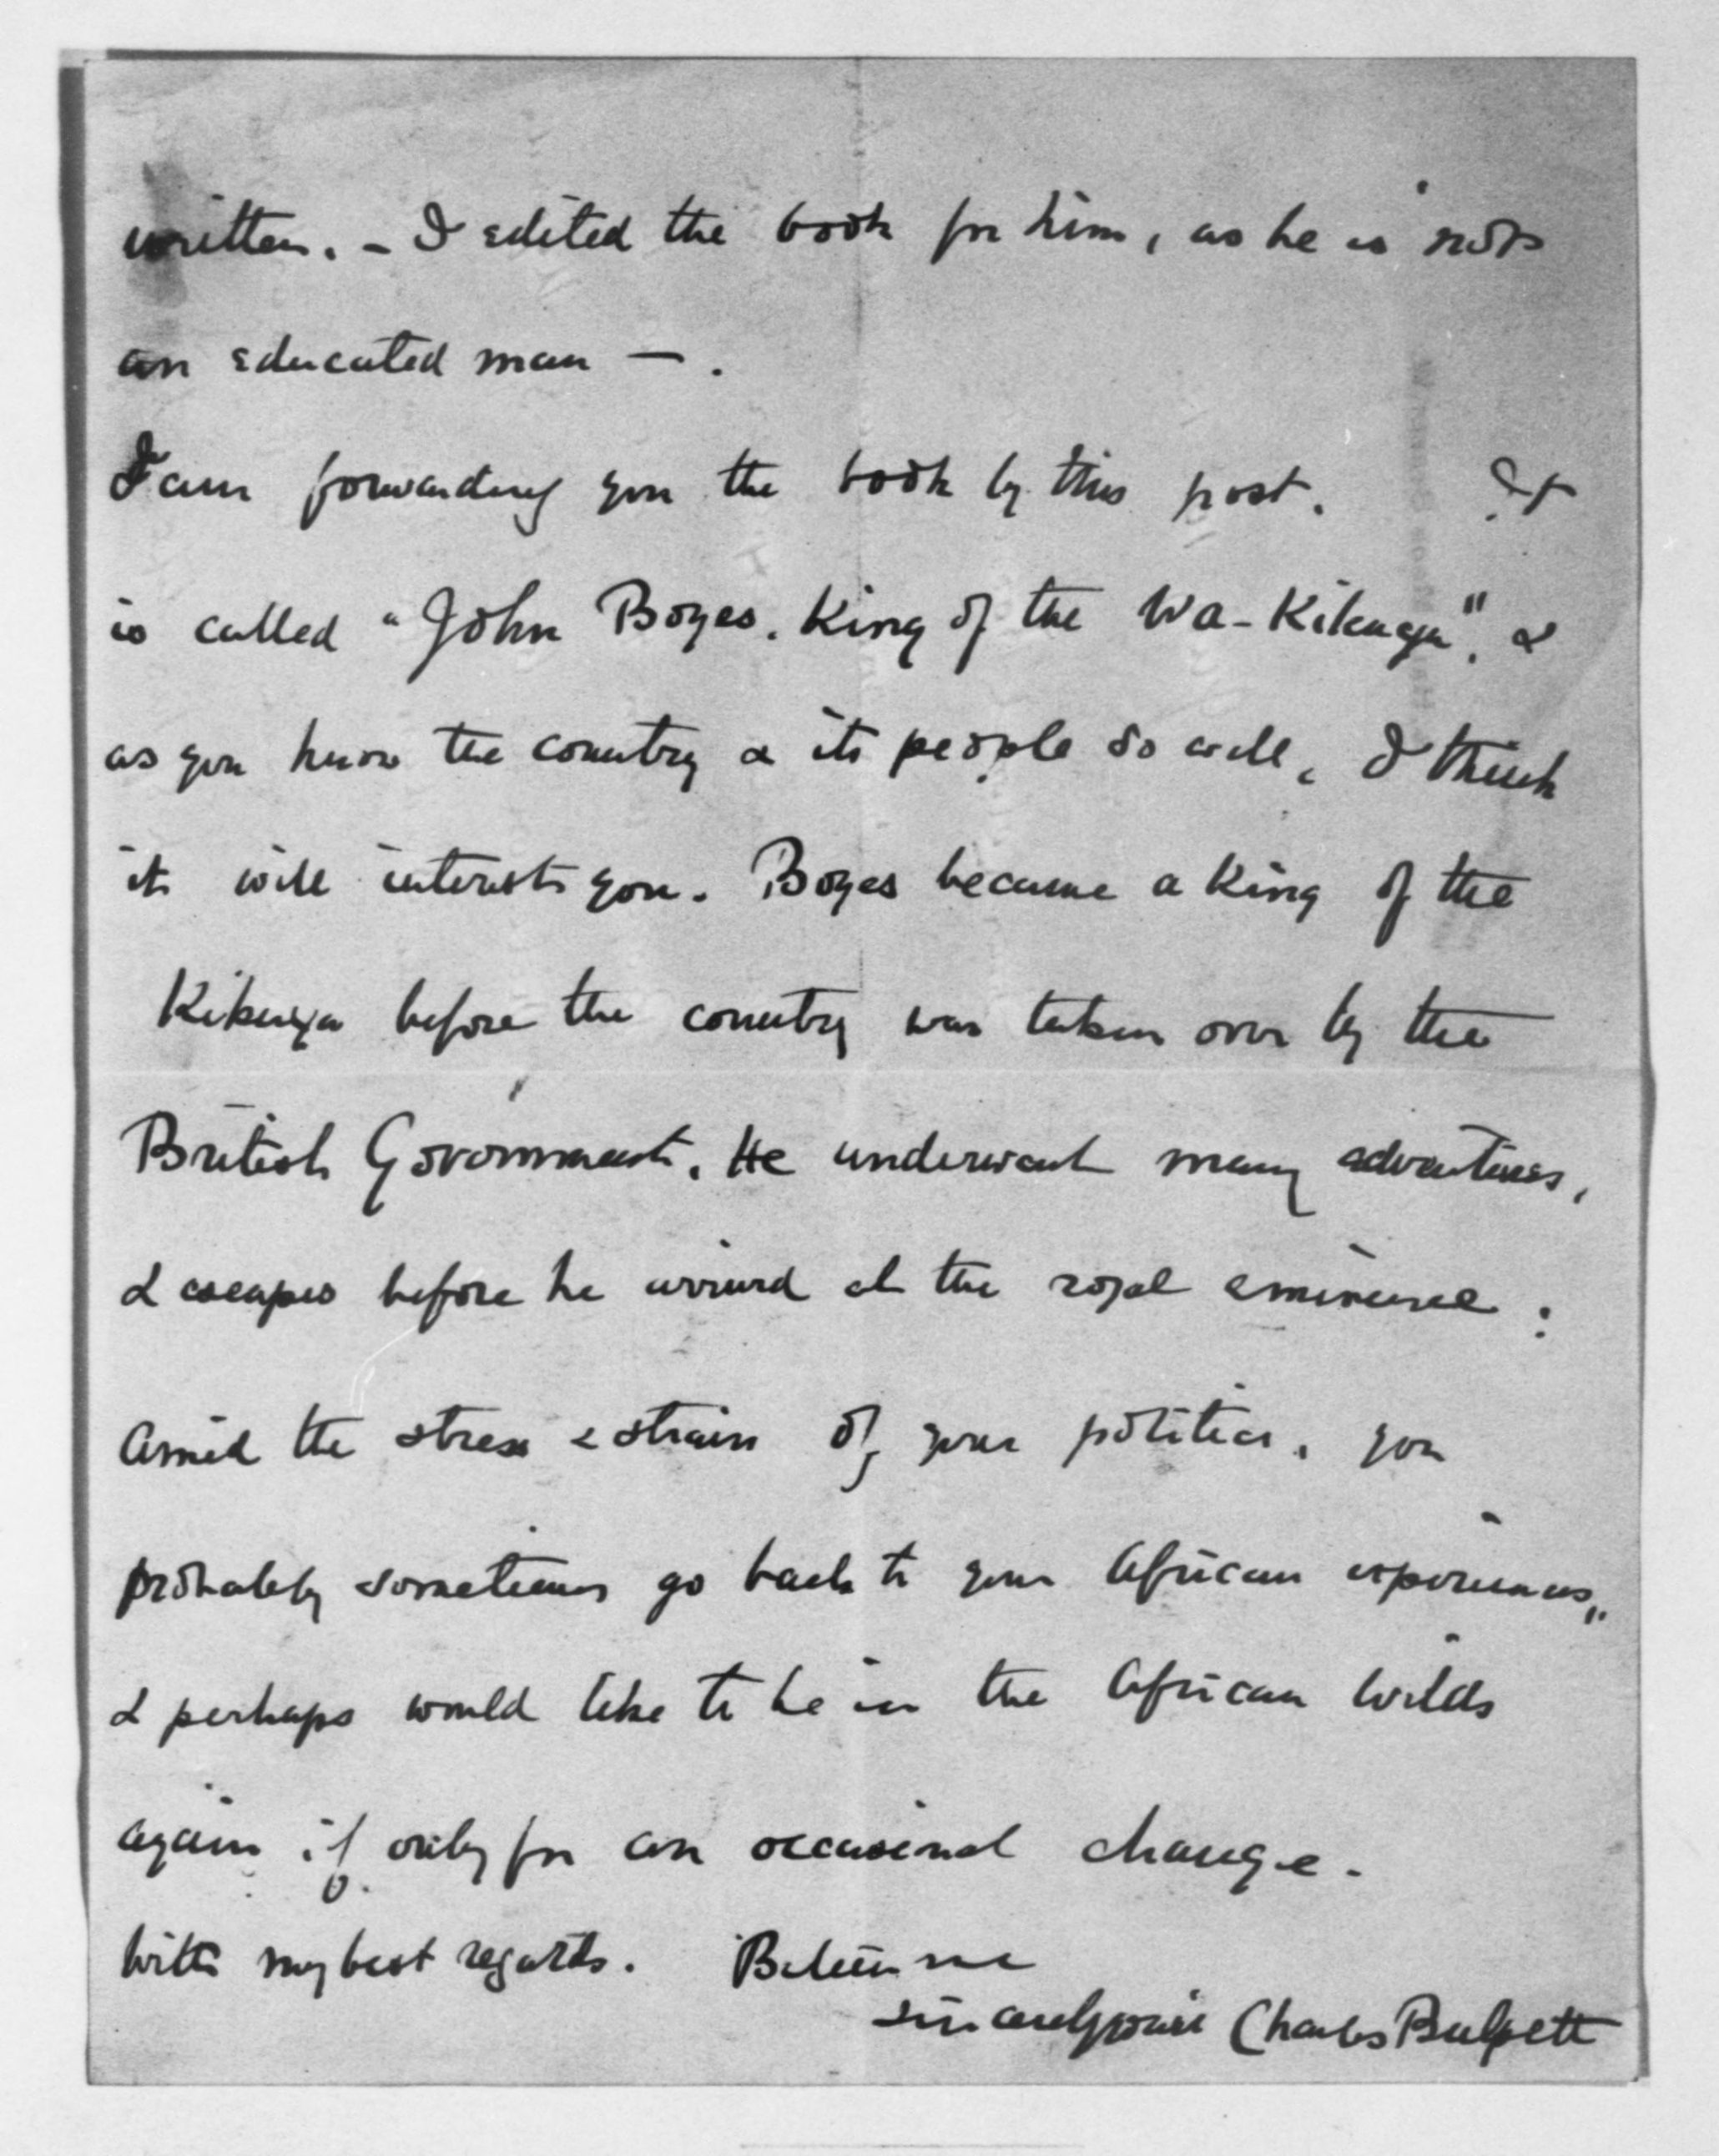 written. - I edited the book for him, as he is not
an educated man - .
I am forwarding you the book by this post. It
is called "John Boyes. King of the Wa-Kikuyu", &
as you know the country & its people so well, I think
it will interest you. Boyes became a King of the
Kikuyu before the country was taken over by the
British Government. He underwent many adventures,
& escapes before he arrived at the royal eminence :
Amid the stress & strain of your politics, you
probably sometimes go back to your African experiences,
& perhaps would like to be in the African wilds
again if only for an occasional change.
With my best regards. Believe me
sincerely yours Charles Bulpett